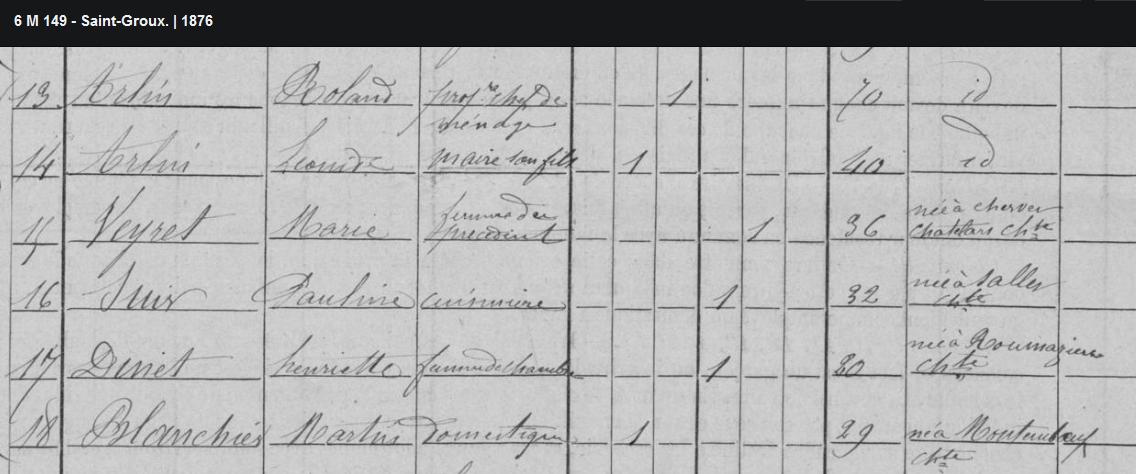 6 M 149 - Saint-Groux. | 1876
13 Arlin Roland prop.re chef de ménage 1 70 id
14 Arlin Leonide maire son fils 1 40 id
15 Veyret Marie femme du précédent 1 36 née à cherves chatelars chte
16 Pauline cuisinière 1 32 née à Salles chte
17 henriette femme de chambre 1 20 née à Roumazieres chte
18 Blanchier Martin domestique 1 29 né à Montembœuf chte